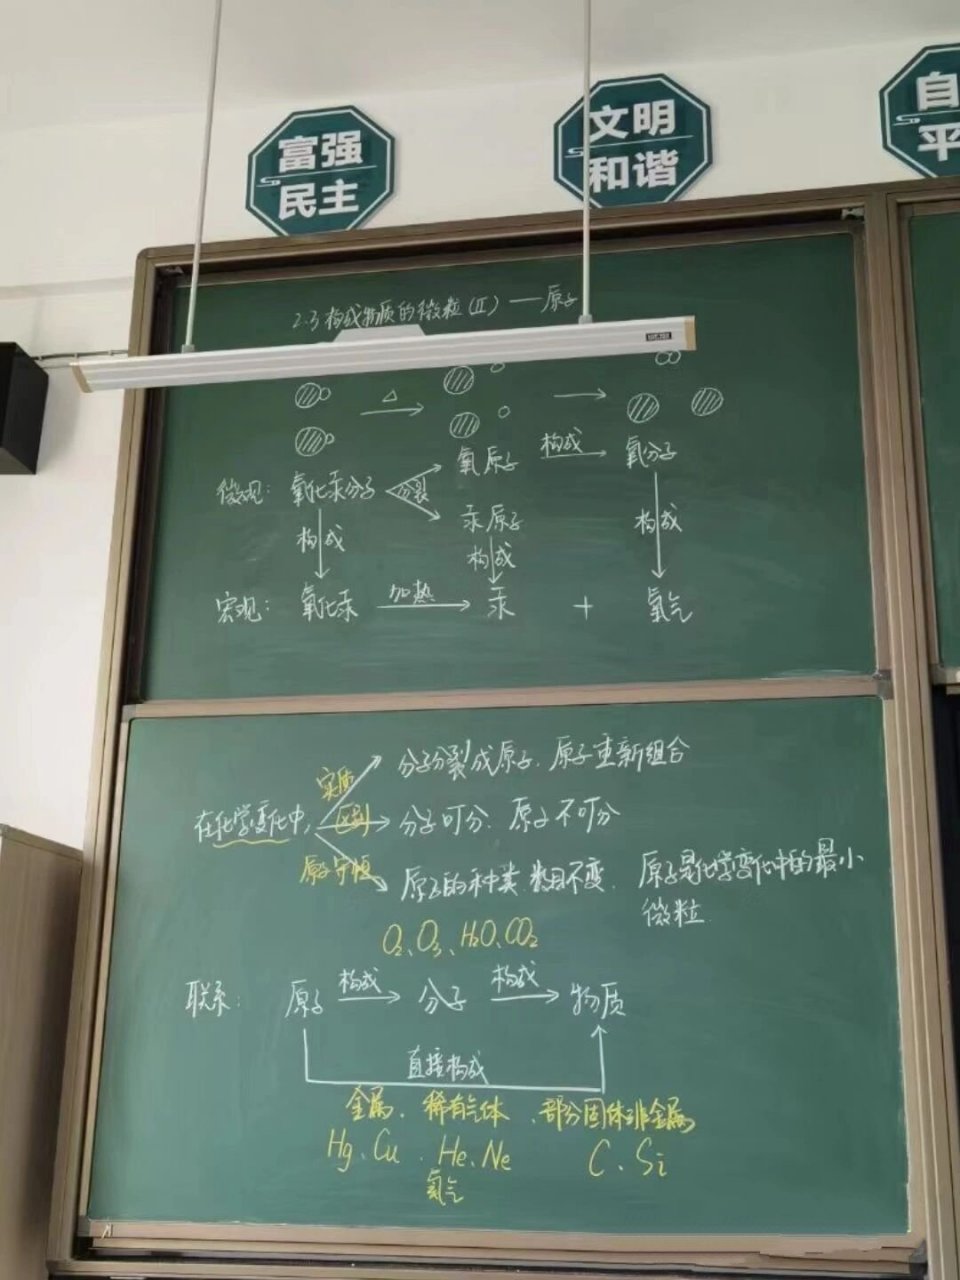 富强
民主
文明
和谐
自
平
2.3 构成物质的微粒(Ⅱ)——原子
△
微观: 氧化汞分子 分裂 氧原子 构成 氧分子
汞原子
构成 构成 构成
宏观: 氧化汞 加热 汞 + 氧气
实质 分子分裂成原子、原子重新组合
在化学变化中, 区别 分子可分、原子不可分
原子守恒 原子的种类 数目不变、 原子是化学变化中的最小
微粒
O₂、O₃、H₂O、CO₂
联系: 原子 构成 分子 构成 物质
直接构成
金属、稀有气体、部分固体非金属
Hg、Cu、He、Ne C、Si
氦气